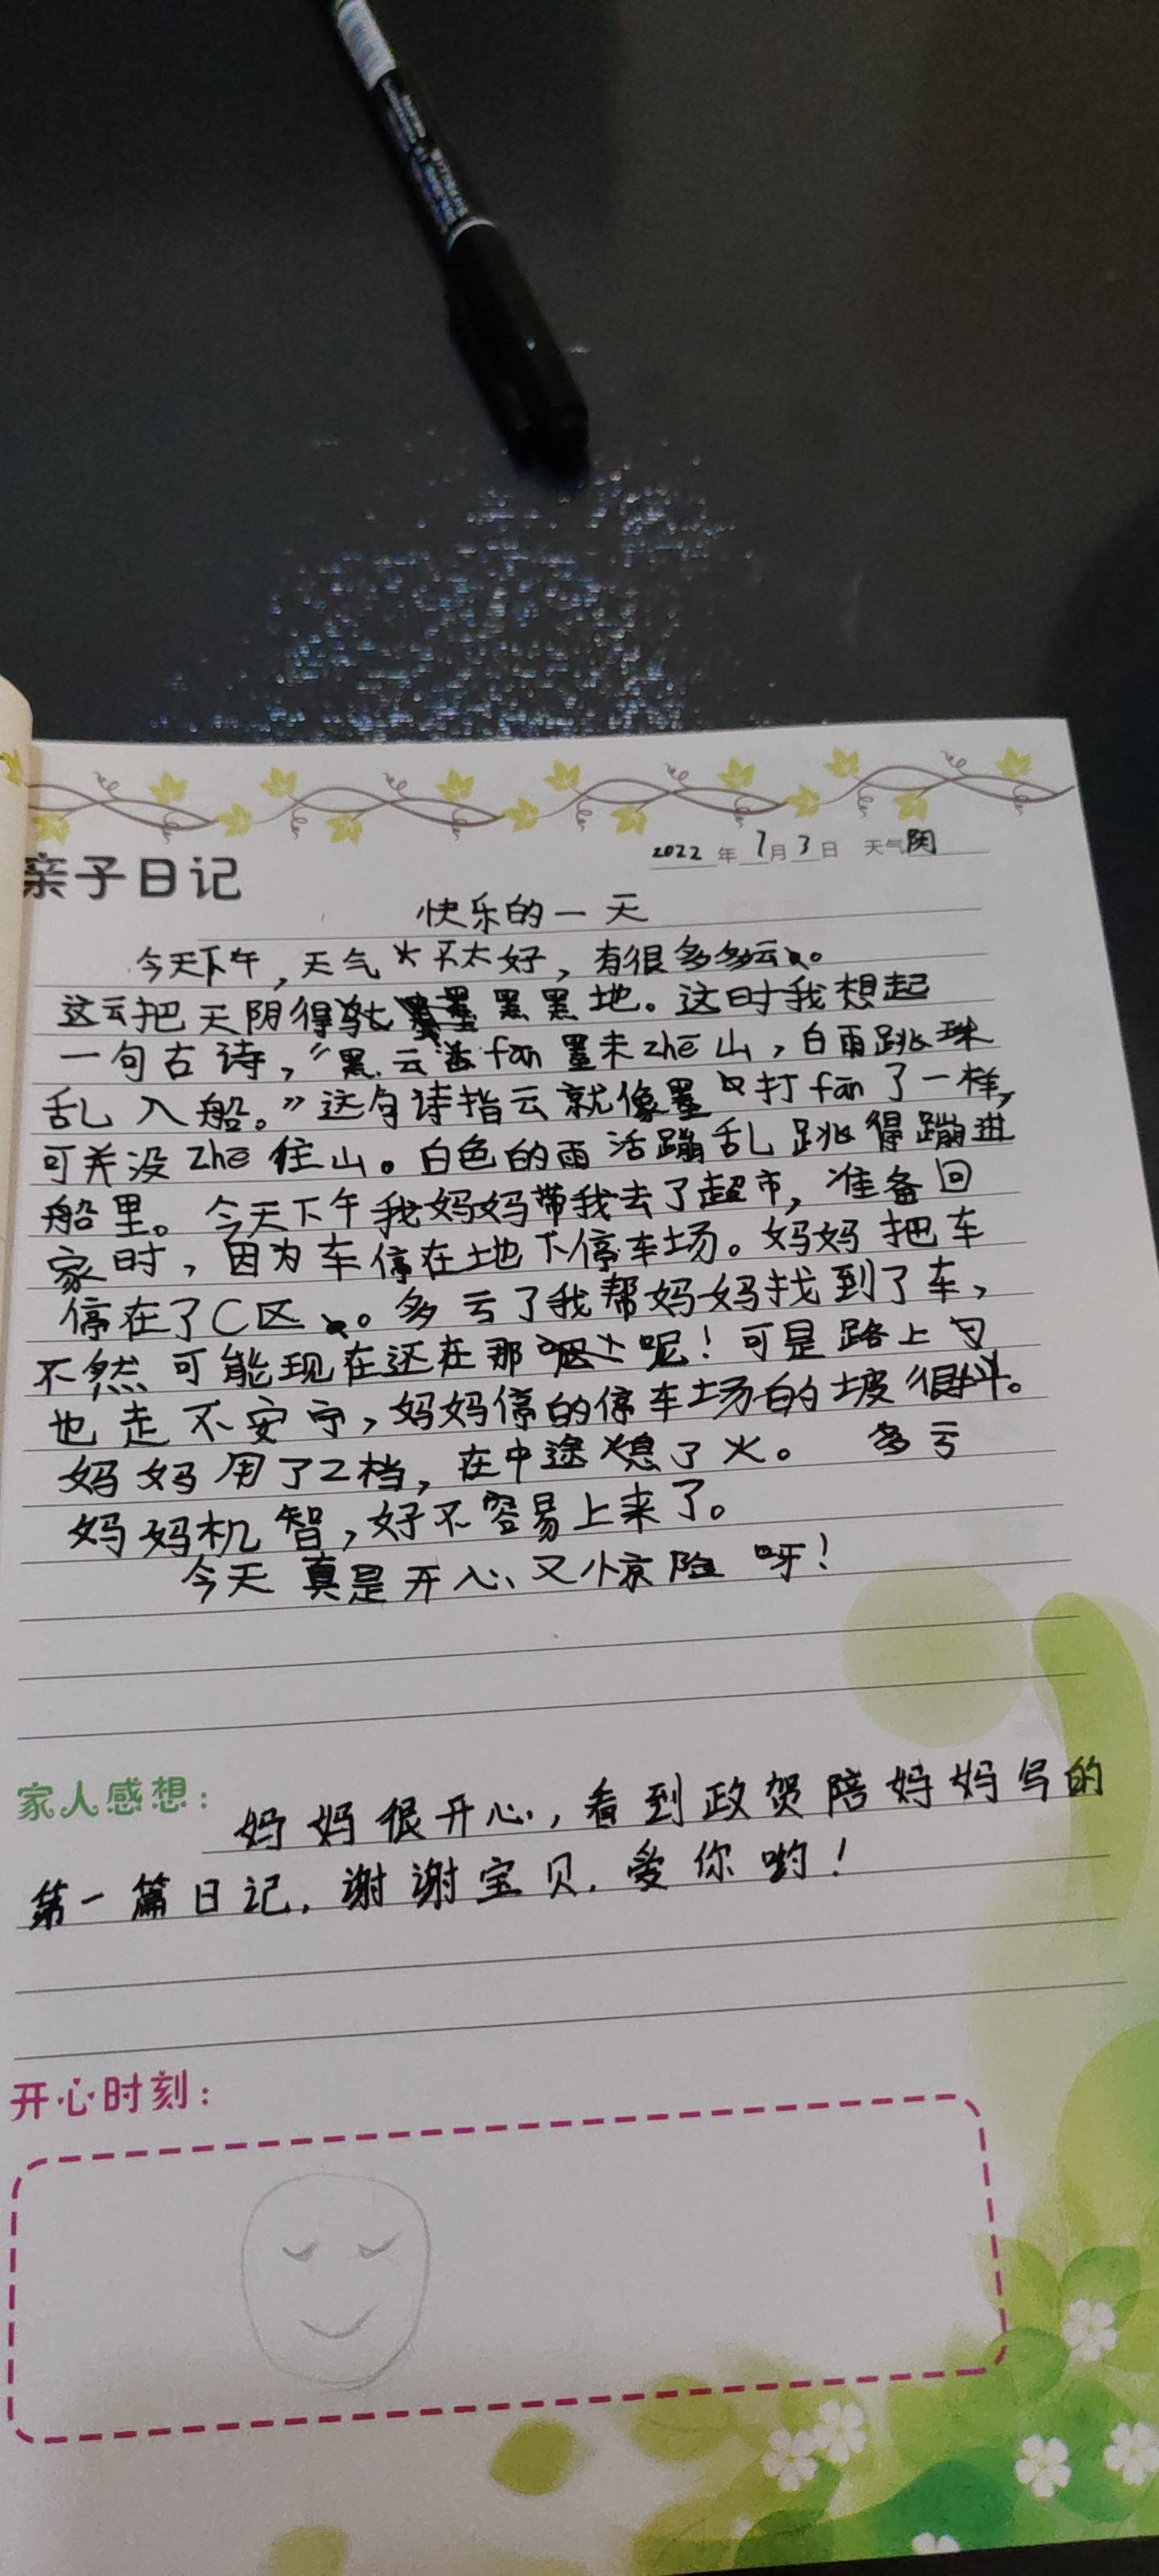 2022 年 7月 3 日 天气 阴
亲子日记
快乐的一天
今天下午,天气不太好,有很多多云。
这云把天阴得 黑黑地。这时我想起
一句古诗,“黑云 fān 墨未 zhē 山,白雨跳珠
乱入船。”这句诗指云就像墨 打 fān 了一样,
可并没 zhē 住山。白色的雨活蹦乱跳得蹦进
船里。今天下午我妈妈带我去了超市,准备回
家时,因为车停在地下停车场。妈妈把车
停在了C区。多亏了我帮妈妈找到了车,
不然可能现在还在那 呢!可是路上
也走不安宁,妈妈停的停车场的坡很抖。
妈妈用了2档,在中途熄了火。 多亏
妈妈机智,好不容易上来了。
今天真是开心、又惊险呀!
家人感想:
妈妈很开心,看到政贺陪妈妈写的
第一篇日记,谢谢宝贝,爱你哟!
开心时刻: